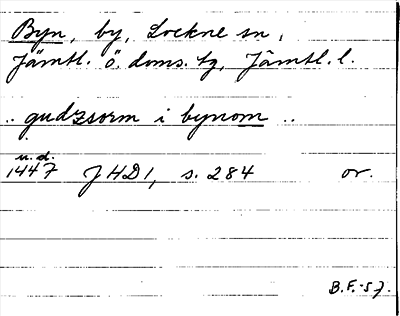 Byn, by, Lockne sn,
Jämtl. ö. doms. tg, Jämtl. l.
.. gudzsorm i bynom ..
u.d.
1447 JHD1, s. 284 or.
B.F.-57.